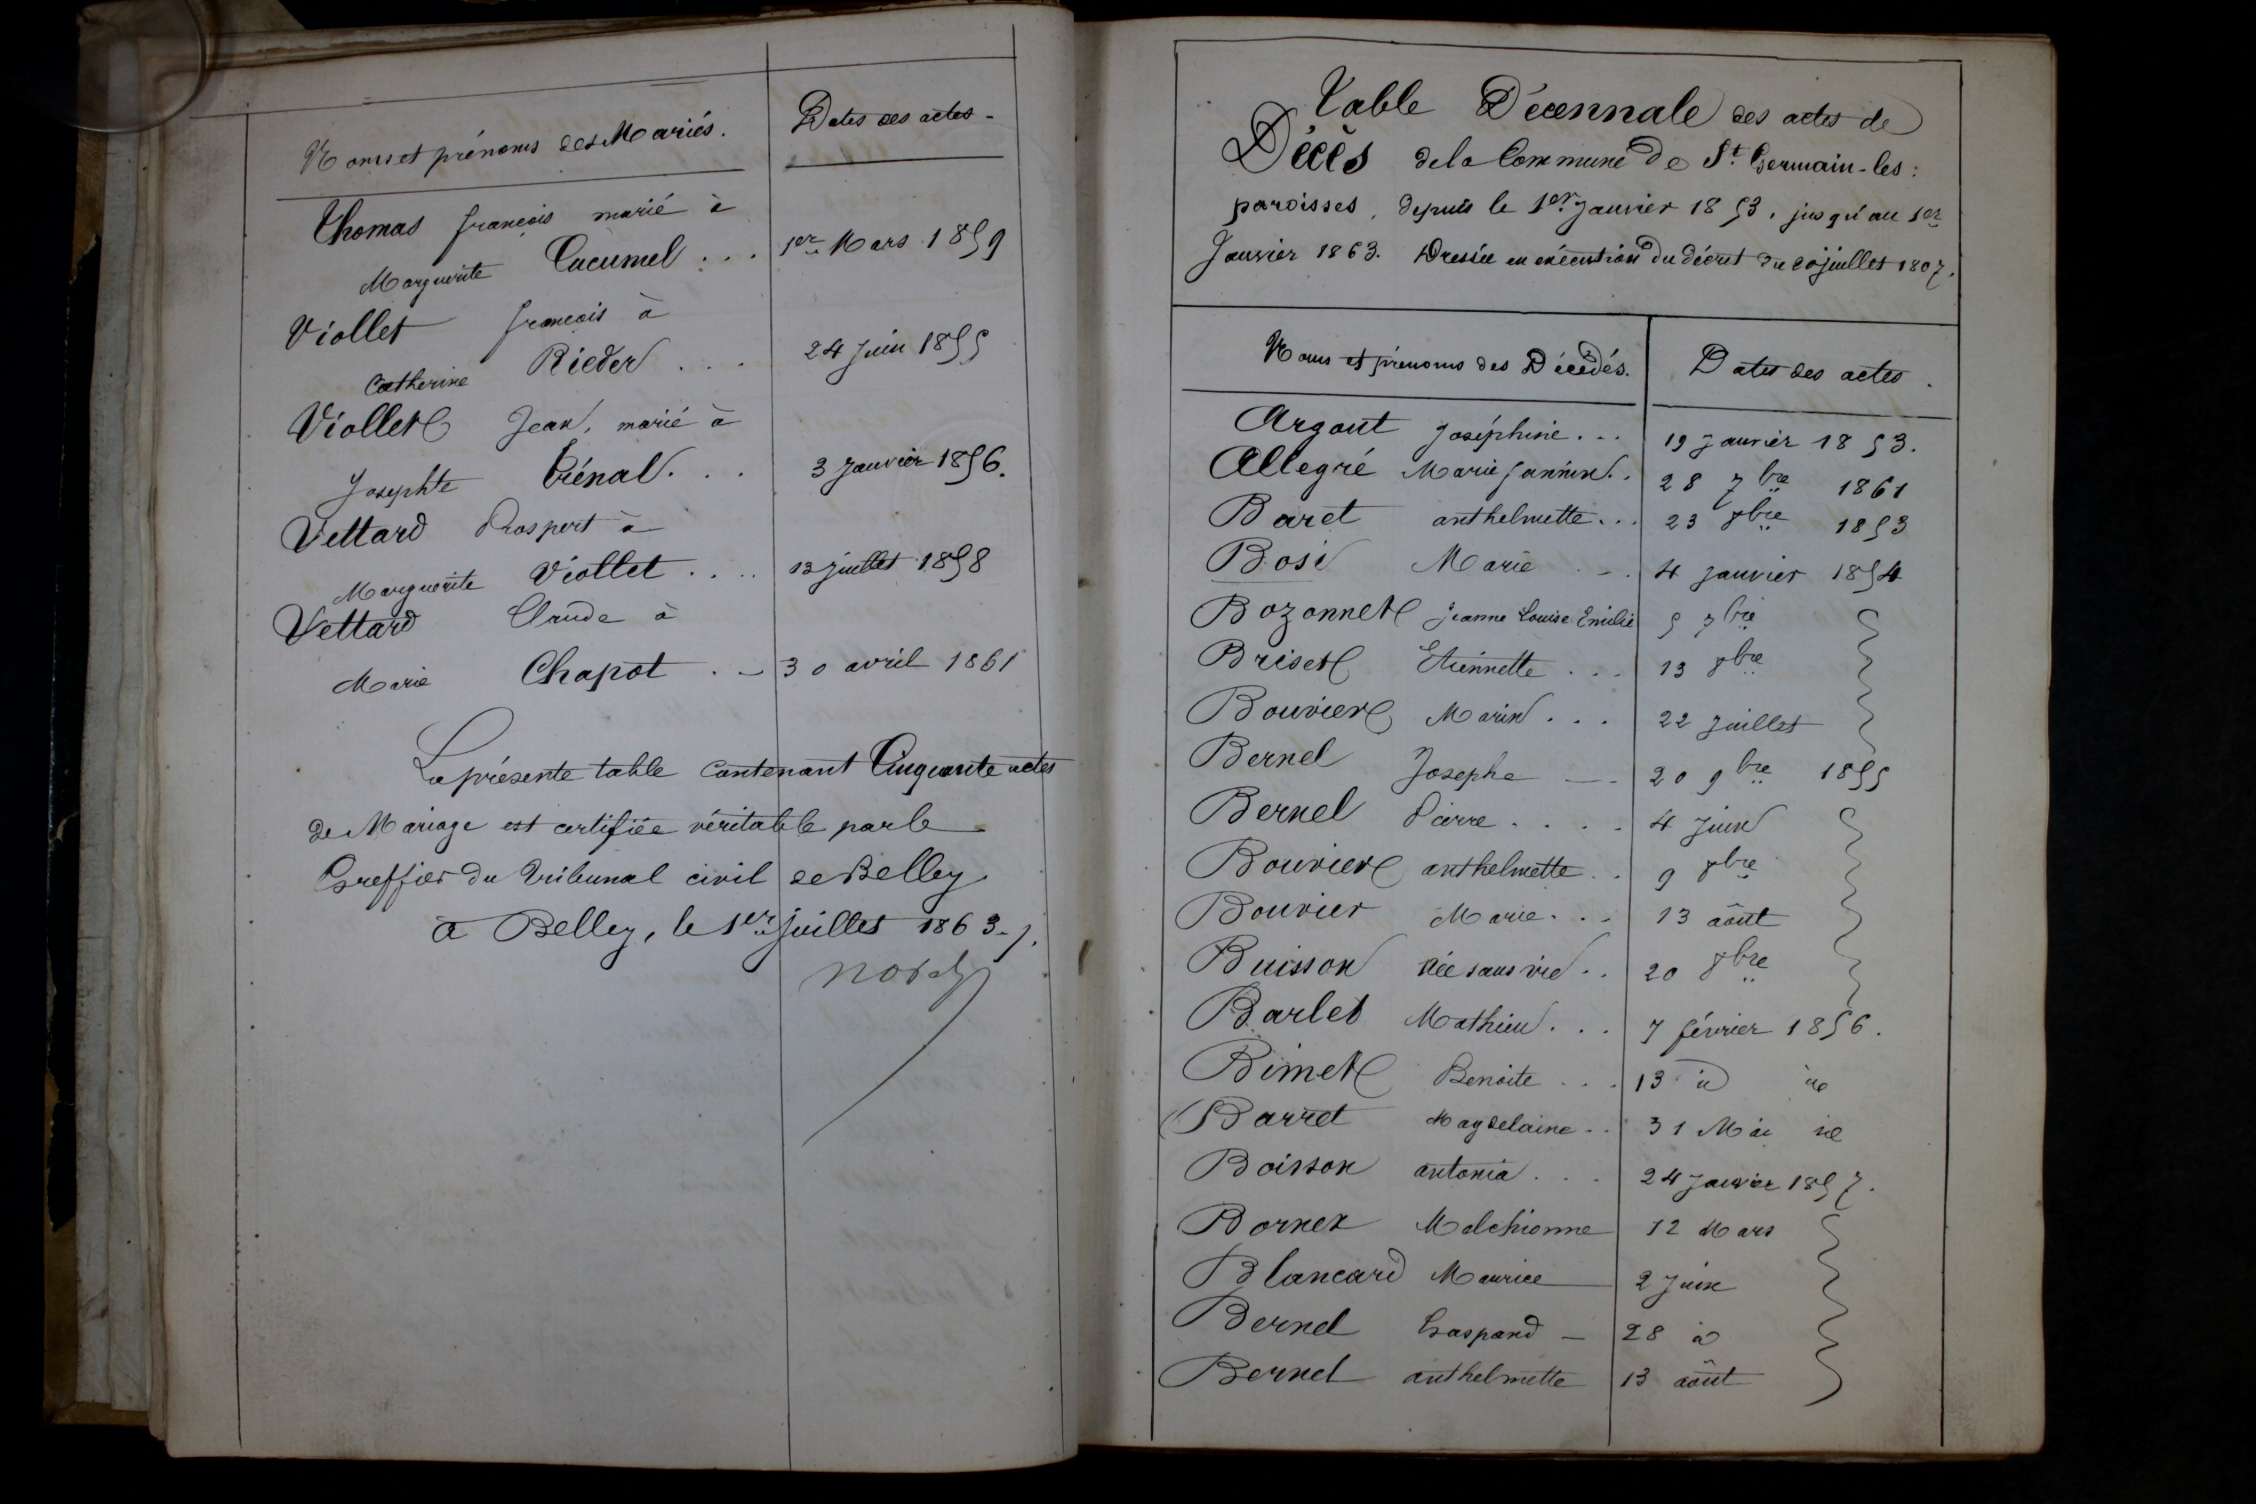 Noms et prénoms des Mariés. Dates des actes -
Thomas françois marié à
Marguerite Cucumel ... 1er Mars 1859
Viollet françois à
Catherine Rieder ... 24 Juin 1855
Viollet Jean, marié à
Josephte Trénal ... 3 Janvier 1856.
Vettard Prospert à
Marguerite Viollet .... 13 juillet 1858
Vettard Claude à
Marie Chapot . - 30 avril 1861
La présente table contenant Cinquante actes
de Mariage est certifiée véritable par le
Greffier du Tribunal civil de Belley
à Belley, le 1er juillet 1863 ./.
Table Décennale des actes de
Décès de la Commune de St Germain-les:
paroisses, depuis le 1er Janvier 1853, jusqu'au 1er
Janvier 1863. Dressée en exécution du décret du 20 juillet 1807.
Noms et prénoms des Décédés. Dates des actes.
Argout Joséphine ... 19 Janvier 1853.
Allegré Marie Jannin .. 28 7bre 1861
Baret anthelmette ... 23 8bre 1853
Bosi Marie ... 4 Janvier 1854
Bozonnet Jeanne Louise Emilie 5 7bre
Briset Etiennette ... 13 8bre
Bouvier Marin ... 22 Juillet
Bernel Josephe - 20 9bre 1855
Bernel Pierre .... 4 Juin
Bouvier anthelmette .. 9 8bre
Bouvier Marie ... 13 août
Buisson née sans vie .. 20 8bre
Barlet Mathieu ... 7 février 1856.
Bimet Benoite ... 13 id id
Barret Magdelaine .. 31 Mai id
Boisson antonia ... 24 Janvier 1857.
Bornex Melchionne 12 Mars
Blancard Maurice 2 Juin
Bernel Gaspard - 28 id
Bernel anthelmette 13 août